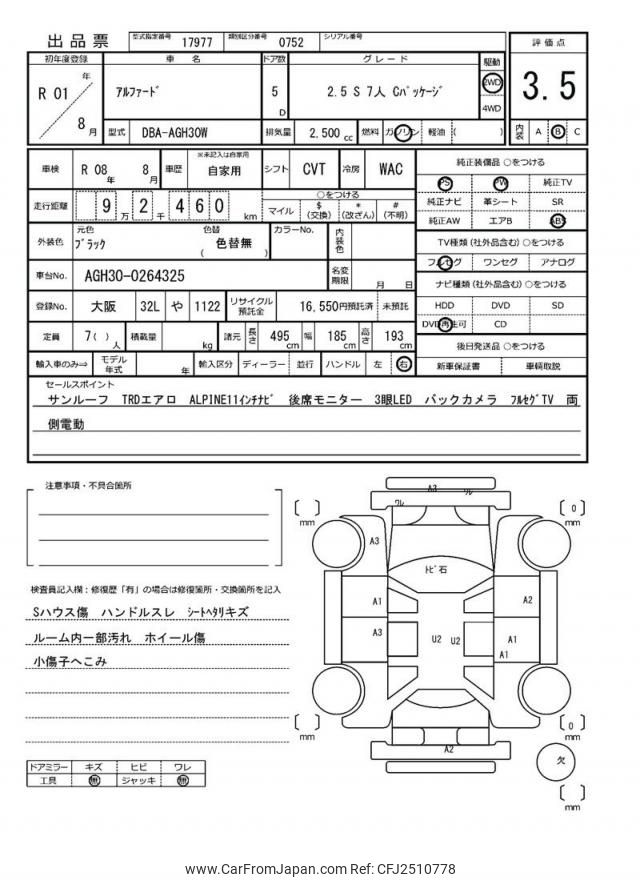 出品票 型式指定番号 17977 類別区分番号 0752 シリアル番号
初年度登録 車名 ドア数 グレード 駆動 評価点
R 01 年 8 月 アルファード 5 D 2.5 S 7人 Cパッケージ 2WD 4WD 3.5
型式 DBA-AGH30W 排気量 2,500 cc 燃料 ガソリン 軽油 ( ) 内装 A B C
車検 R 08 年 8 月 車歴 ※未記入は自家用 自家用 シフト CVT 冷房 WAC
純正装備品 ○をつける
PS PW 純正TV
純正ナビ 革シート SR
純正AW エアB ABS
走行距離 9 万 2 千 4 6 0 km ○をつける マイル $ (交換) * (改ざん) # (不明)
外装色 元色 ブラック 色替 色替無 ( ) カラーNo. 内装色
TV種類 (社外品含む) ○をつける
フルセグ ワンセグ アナログ
車台No. AGH30-0264325 名変期限 月 日
ナビ種類 (社外品含む) ○をつける
HDD DVD SD
DVD再生可 CD
登録No. 大阪 32L や 1122 リサイクル預託金 16,550円預託済 未預託
定員 7 ( ) 人 積載量 kg 諸元 長さ 495 cm 幅 185 cm 高さ 193 cm
後日発送品 ○をつける
新車保証書 車輌取説
輸入車のみ⇒ モデル年式 年 輸入区分 ディーラー 並行 ハンドル 左 右
セールスポイント
サンルーフ TRDエアロ ALPINE11インチナビ 後席モニター 3眼LED バックカメラ フルセグTV 両
側電動
注意事項・不具合箇所
検査員記入欄：修復歴「有」の場合は修復箇所・交換箇所を記入
Sハウス傷 ハンドルスレ シートヘタリキズ
ルーム内一部汚れ ホイール傷
小傷子へこみ
ドアミラー キズ ヒビ ワレ
工具 無 ジャッキ 無
A3 ワレ
ワレ
[ ] mm [ 0 ] mm
A3
トビ石
A1 A2
A3 U2 U2 A1
A1
[ ] mm [ 0 ] mm
A2
欠
[ ] mm
www.CarFromJapan.com Ref: CFJ2510778